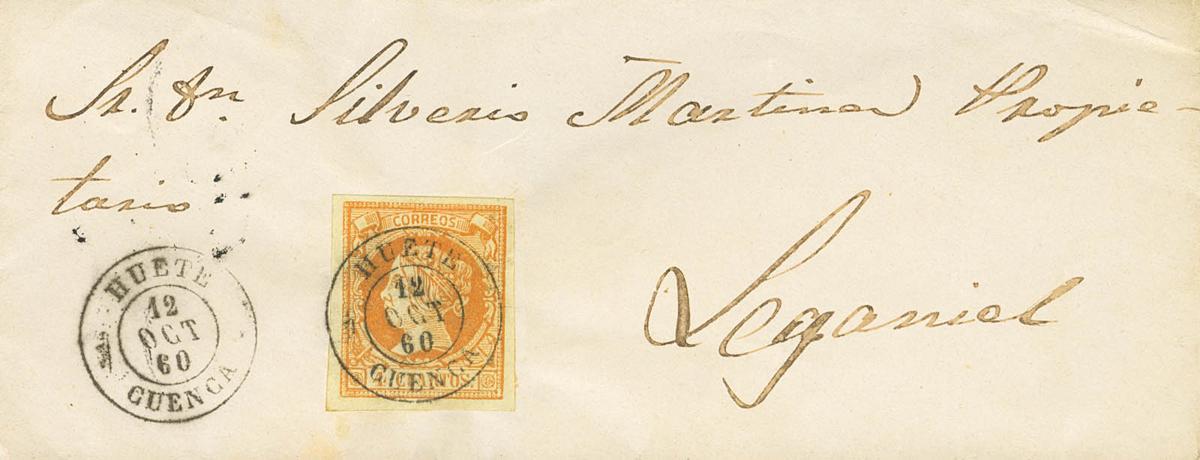 Sr. Dn. Silverio Martinez Propie-
tario
CORREOS
HUETE
12
OCT
60
CUENCA
HUETE
12
OCT
60
CUENCA
Leganiel